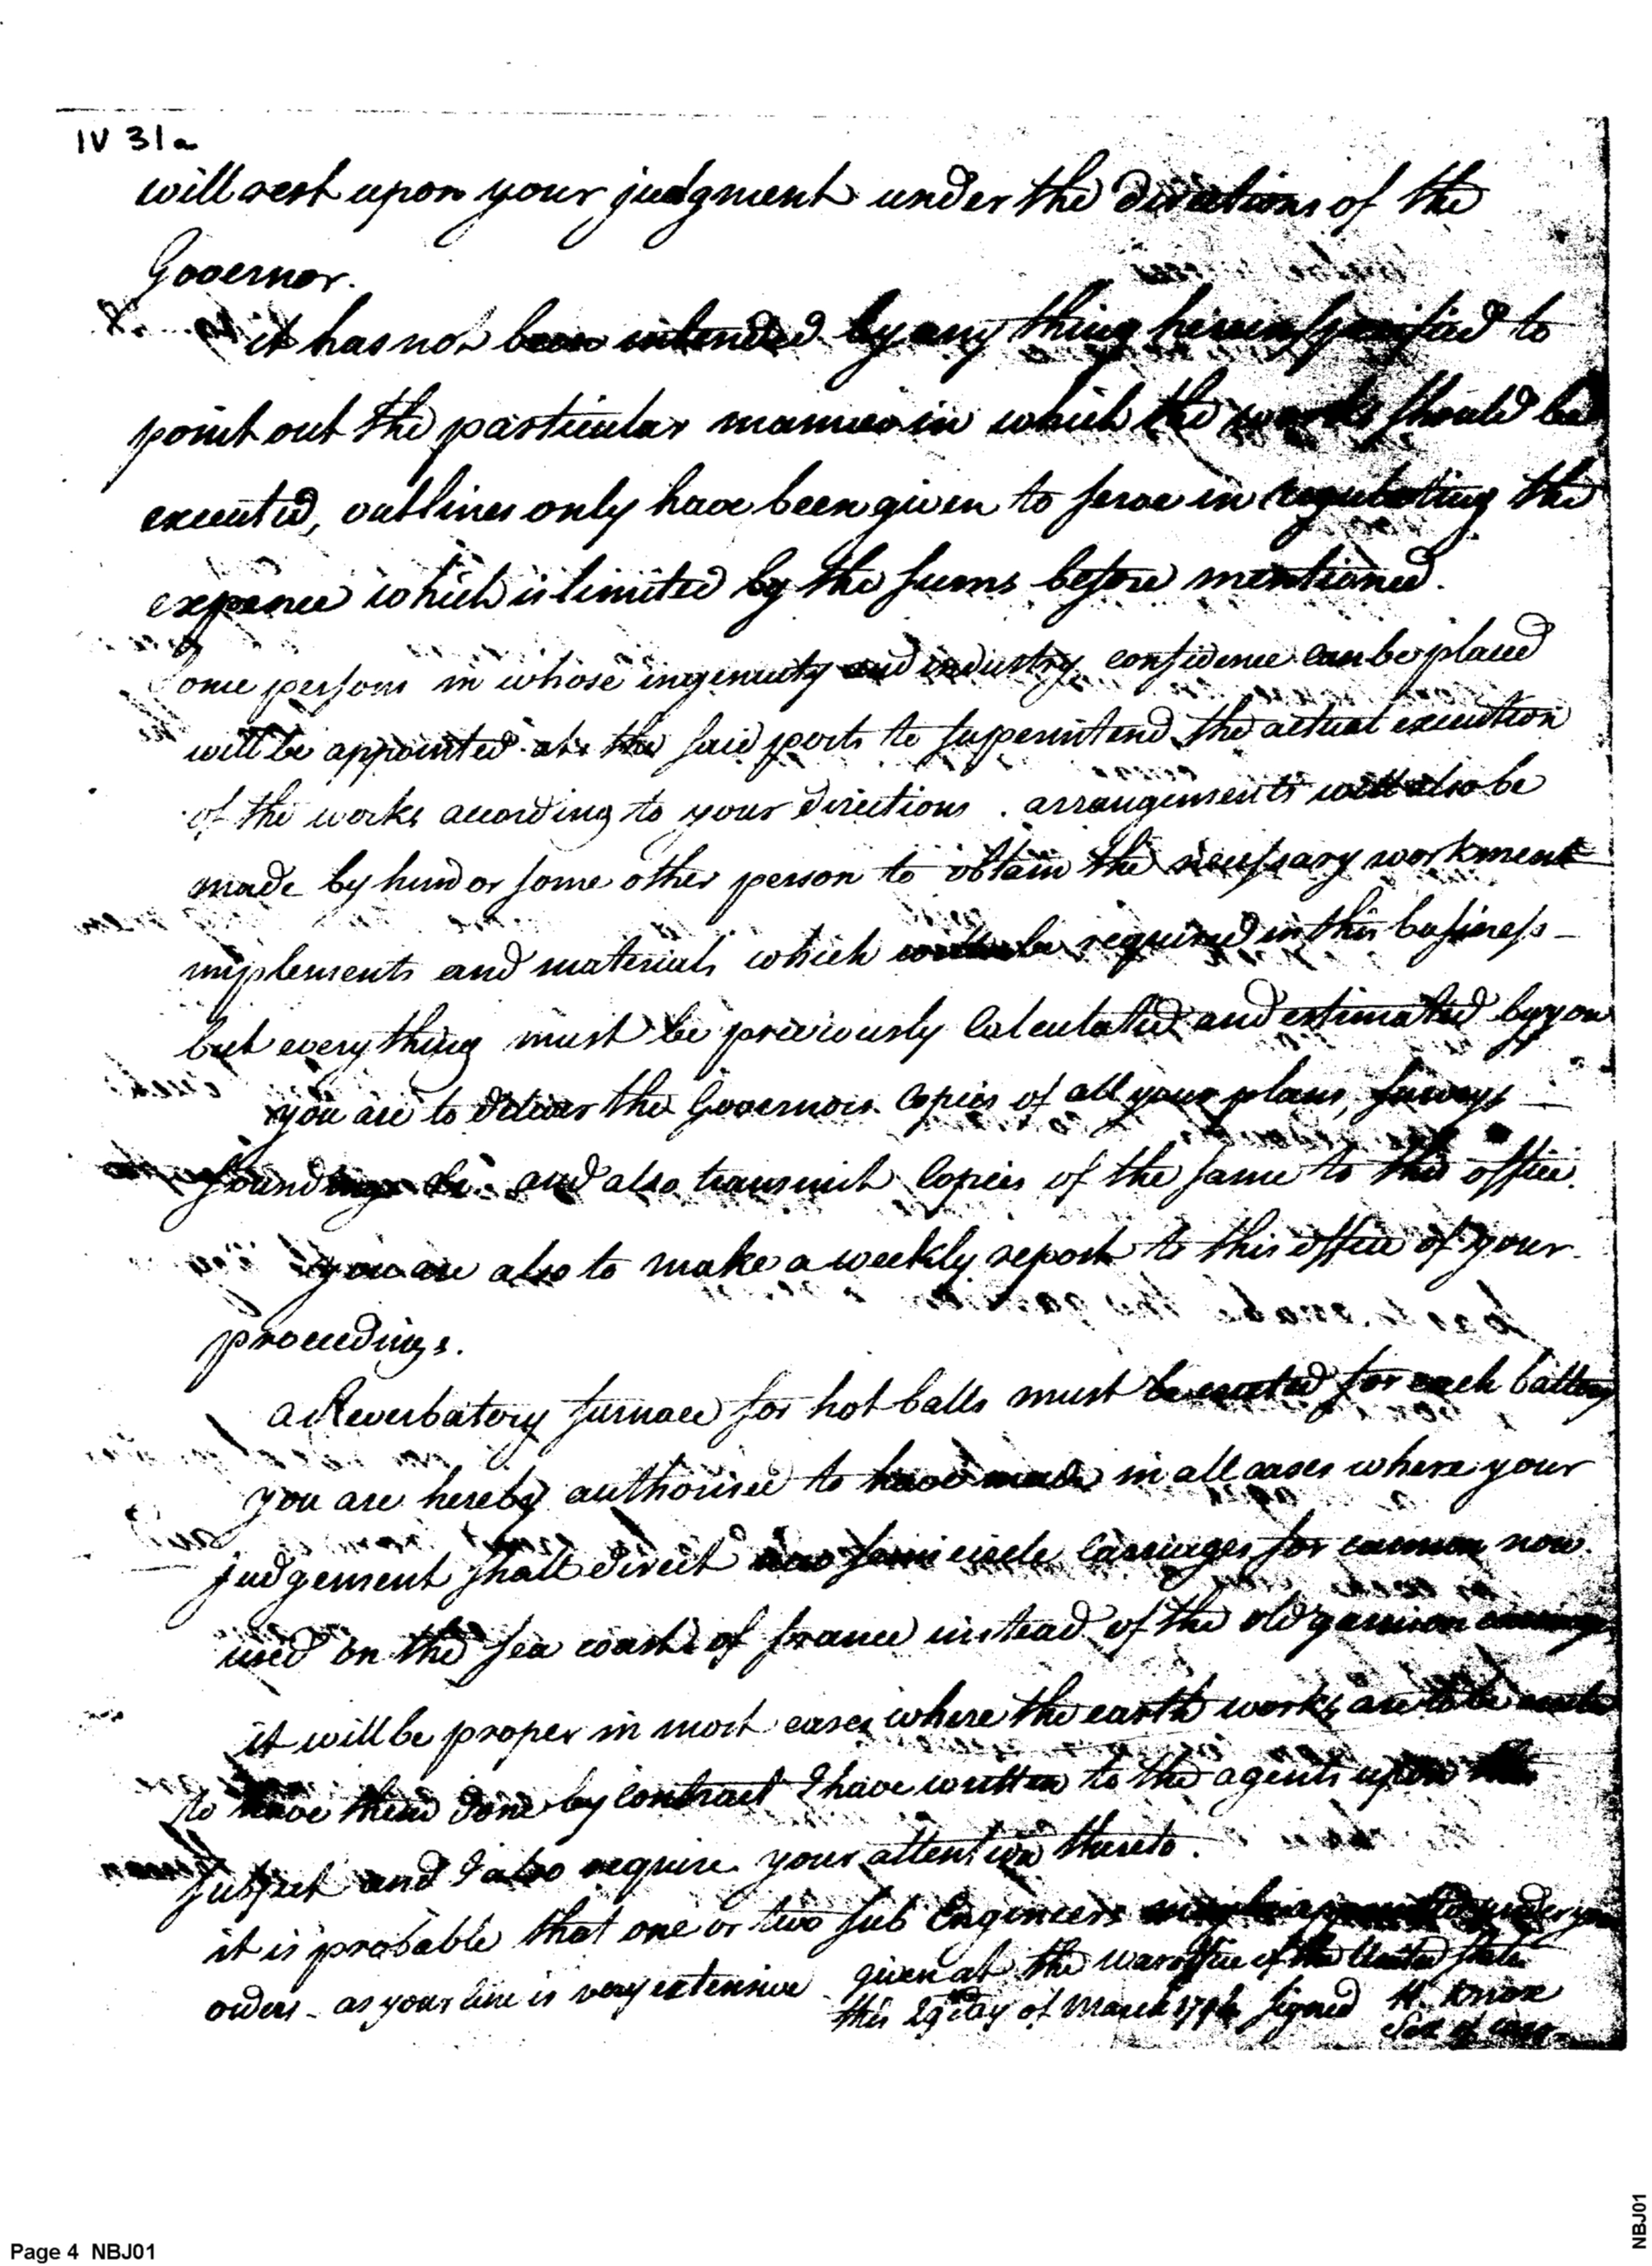 IV 31a
will rest upon your judgment under the directions of the
Governor.
it has not been intended by any thing herein specified to
point out the particular manner in which the works should be
executed, outlines only have been given to serve in regulating the
expence which is limited by the sums before mentioned.
Some persons in whose ingenuity and industry confidence can be placed
will be appointed at the said ports to superintend the actual execution
of the works acording to your directions. arrangements will also be
made by him or some other person to obtain the necessary workment
implements and materials which will be required in this business—
but everything must be previously Calculated and estimated by you
you are to deliver the Governors Copies of all your plans, surveys —
soundings &c. and also transmit Copies of the same to this office.
you are also to make a weekly report to this office of your
proceedings.
a Reverbatory furnace for hot balls must be erected for each battery
you are hereby authorised to have made in all cases where your
judgement shall direct semi circle Carriages for cannon now.
used on the sea coast of france instead of the old garrison
it will be proper in most cases where the earth works are to be
to have them done by Contract I have written to the agents upon
subject and I also require your attention thereto.
it is probable that one or two sub Engineers may be appointed under your
orders – as your line is very extensive given at the War office of the United States
this 29 day of March 1794 signed H. Knox
Sec of War
Page 4 NBJ01
NBJ01